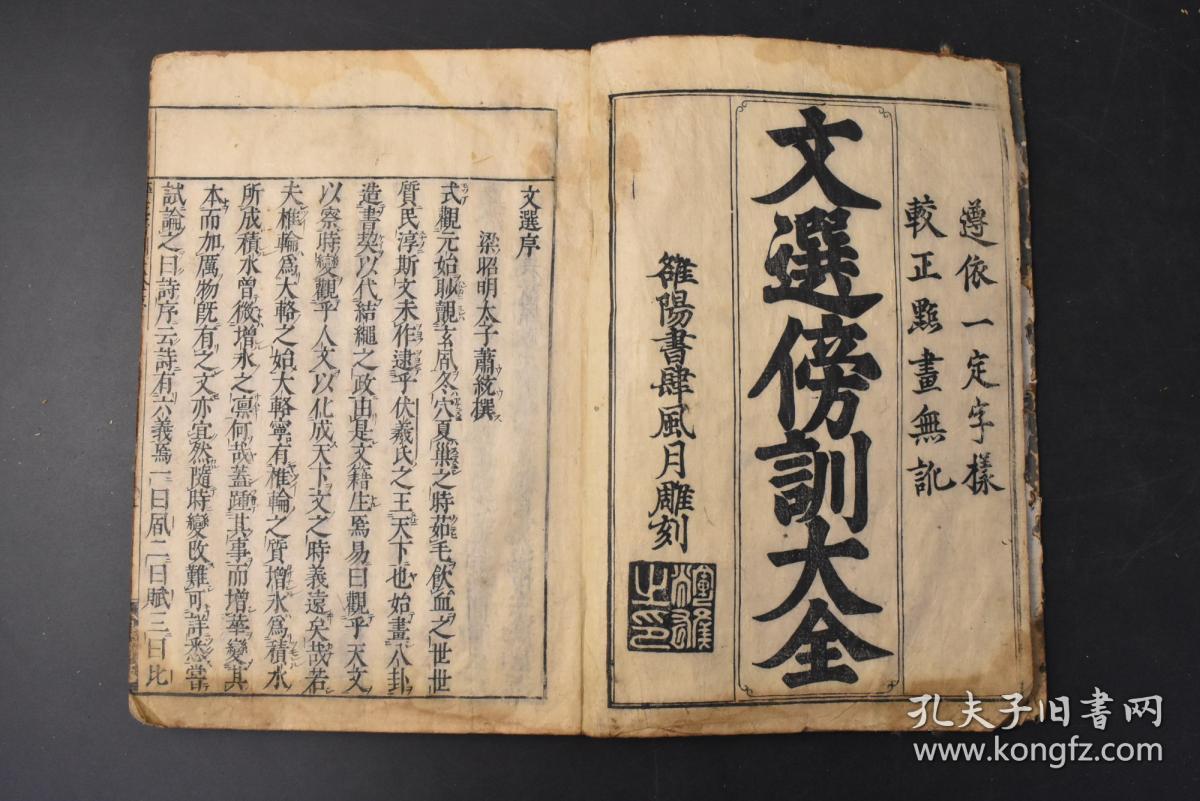 遵依一定字樣
較正點畫無訛
文選傍訓大全
雒陽書肆風月雕刻
文選序
梁昭明太子蕭統撰
式觀元始眇覿玄風冬穴夏巢之時茹毛飲血之世世
質民淳斯文未作逮乎伏羲氏之王天下也始畫八卦
造書契以代結繩之政由是文籍生焉易曰觀乎天文
以察時變觀乎人文以化成天下文之時義遠矣哉若
夫椎輪爲大輅之始大輅寧有椎輪之質增氷爲積水
所成積水曾微增氷之凛何哉蓋踵其事而增華變其
本而加厲物既有之文亦宜然隨時變改難可詳悉嘗
試論之曰詩序云詩有六義焉一曰風二曰賦三曰比
孔夫子旧书网
www.kongfz.com